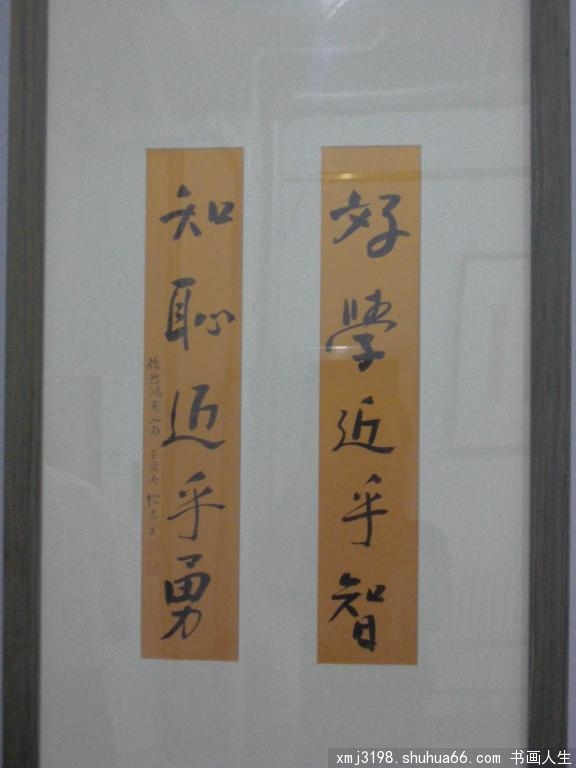 好學近乎智
知恥近乎勇
xmj3198.shuhua66.com 书画人生